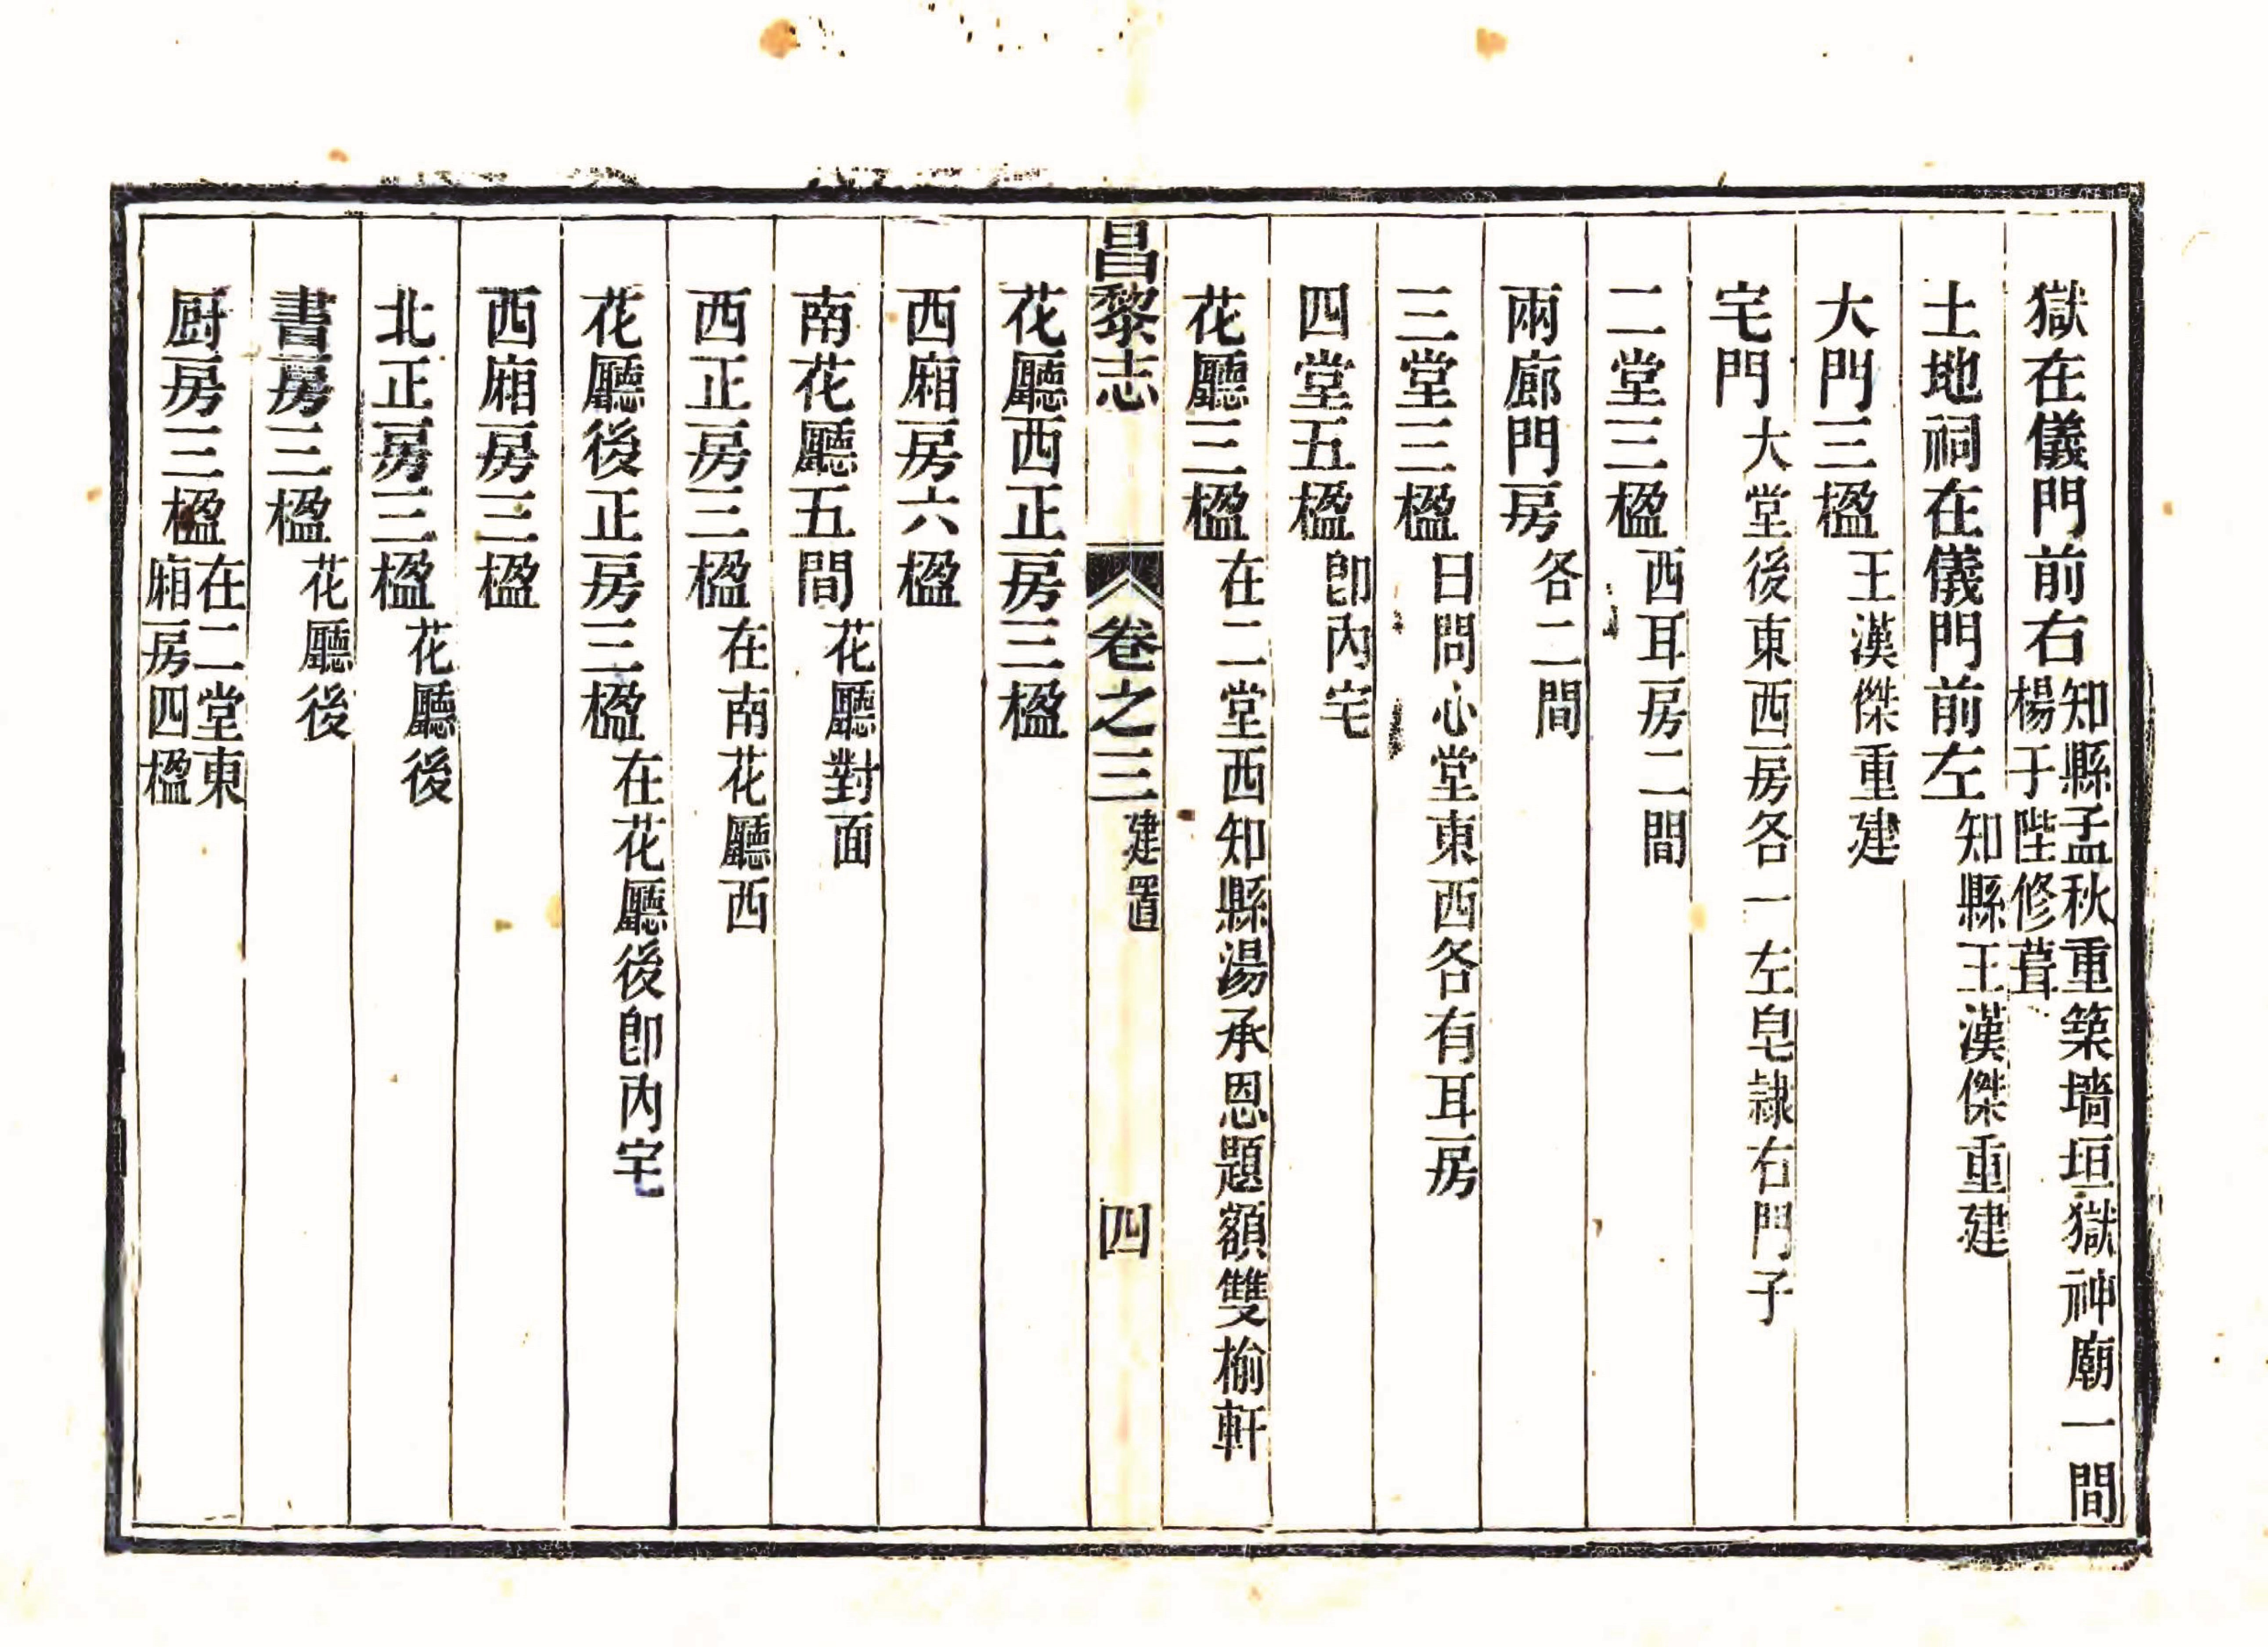 獄在儀門前右知縣孟秋重築墻垣獄神廟一間楊于陛修葺
土地祠在儀門前左知縣王漢傑重建
大門三楹王漢傑重建
宅門大堂後東西房各一左皂隷右門子
二堂三楹西耳房二間
兩廊門房各二間
三堂三楹曰問心堂東西各有耳房
四堂五楹卽內宅
花廳三楹在二堂西知縣湯承恩題額雙榆軒
昌黎志 卷之三 建置 四
花廳西正房三楹
西廂房六楹
南花廳五間花廳對面
西正房三楹在南花廳西
花廳後正房三楹在花廳後卽內宅
西廂房三楹
北正房三楹花廳後
書房三楹花廳後
厨房三楹在二堂東廂房四楹